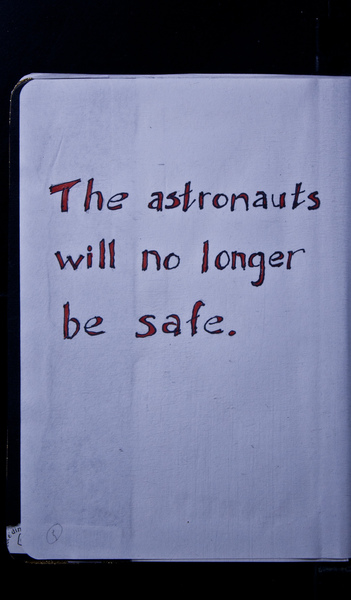 The astronauts
will no longer
be safe.